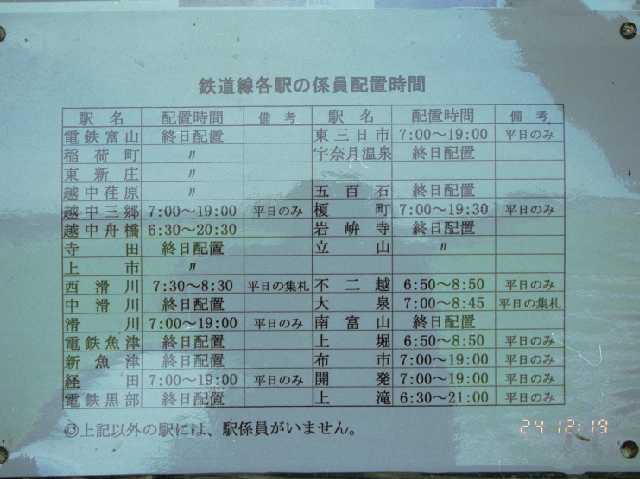 鉄道線各駅の係員配置時間
駅名 配置時間 備考 駅名 配置時間 備考
電鉄富山 終日配置 東三日市 7:00〜19:00 平日のみ
稲荷町 〃 宇奈月温泉 終日配置
東新庄 〃
越中荏原 〃 五百石 終日配置
越中三郷 7:00〜19:00 平日のみ 榎町 7:00〜19:30 平日のみ
越中舟橋 6:30〜20:30 岩峅寺 終日配置
寺田 終日配置 立山 〃
上市 〃
西滑川 7:30〜8:30 平日の集札 不二越 6:50〜8:50 平日のみ
中滑川 終日配置 大泉 7:00〜8:45 平日の集札
滑川 7:00〜19:00 平日のみ 南富山 終日配置
電鉄魚津 終日配置 上堀 6:50〜8:50 平日のみ
新魚津 終日配置 布市 7:00〜19:00 平日のみ
経田 7:00〜19:00 平日のみ 開発 7:00〜19:00 平日のみ
電鉄黒部 終日配置 上滝 6:30〜21:00 平日のみ
◎上記以外の駅には、駅係員がいません。
24 12:19